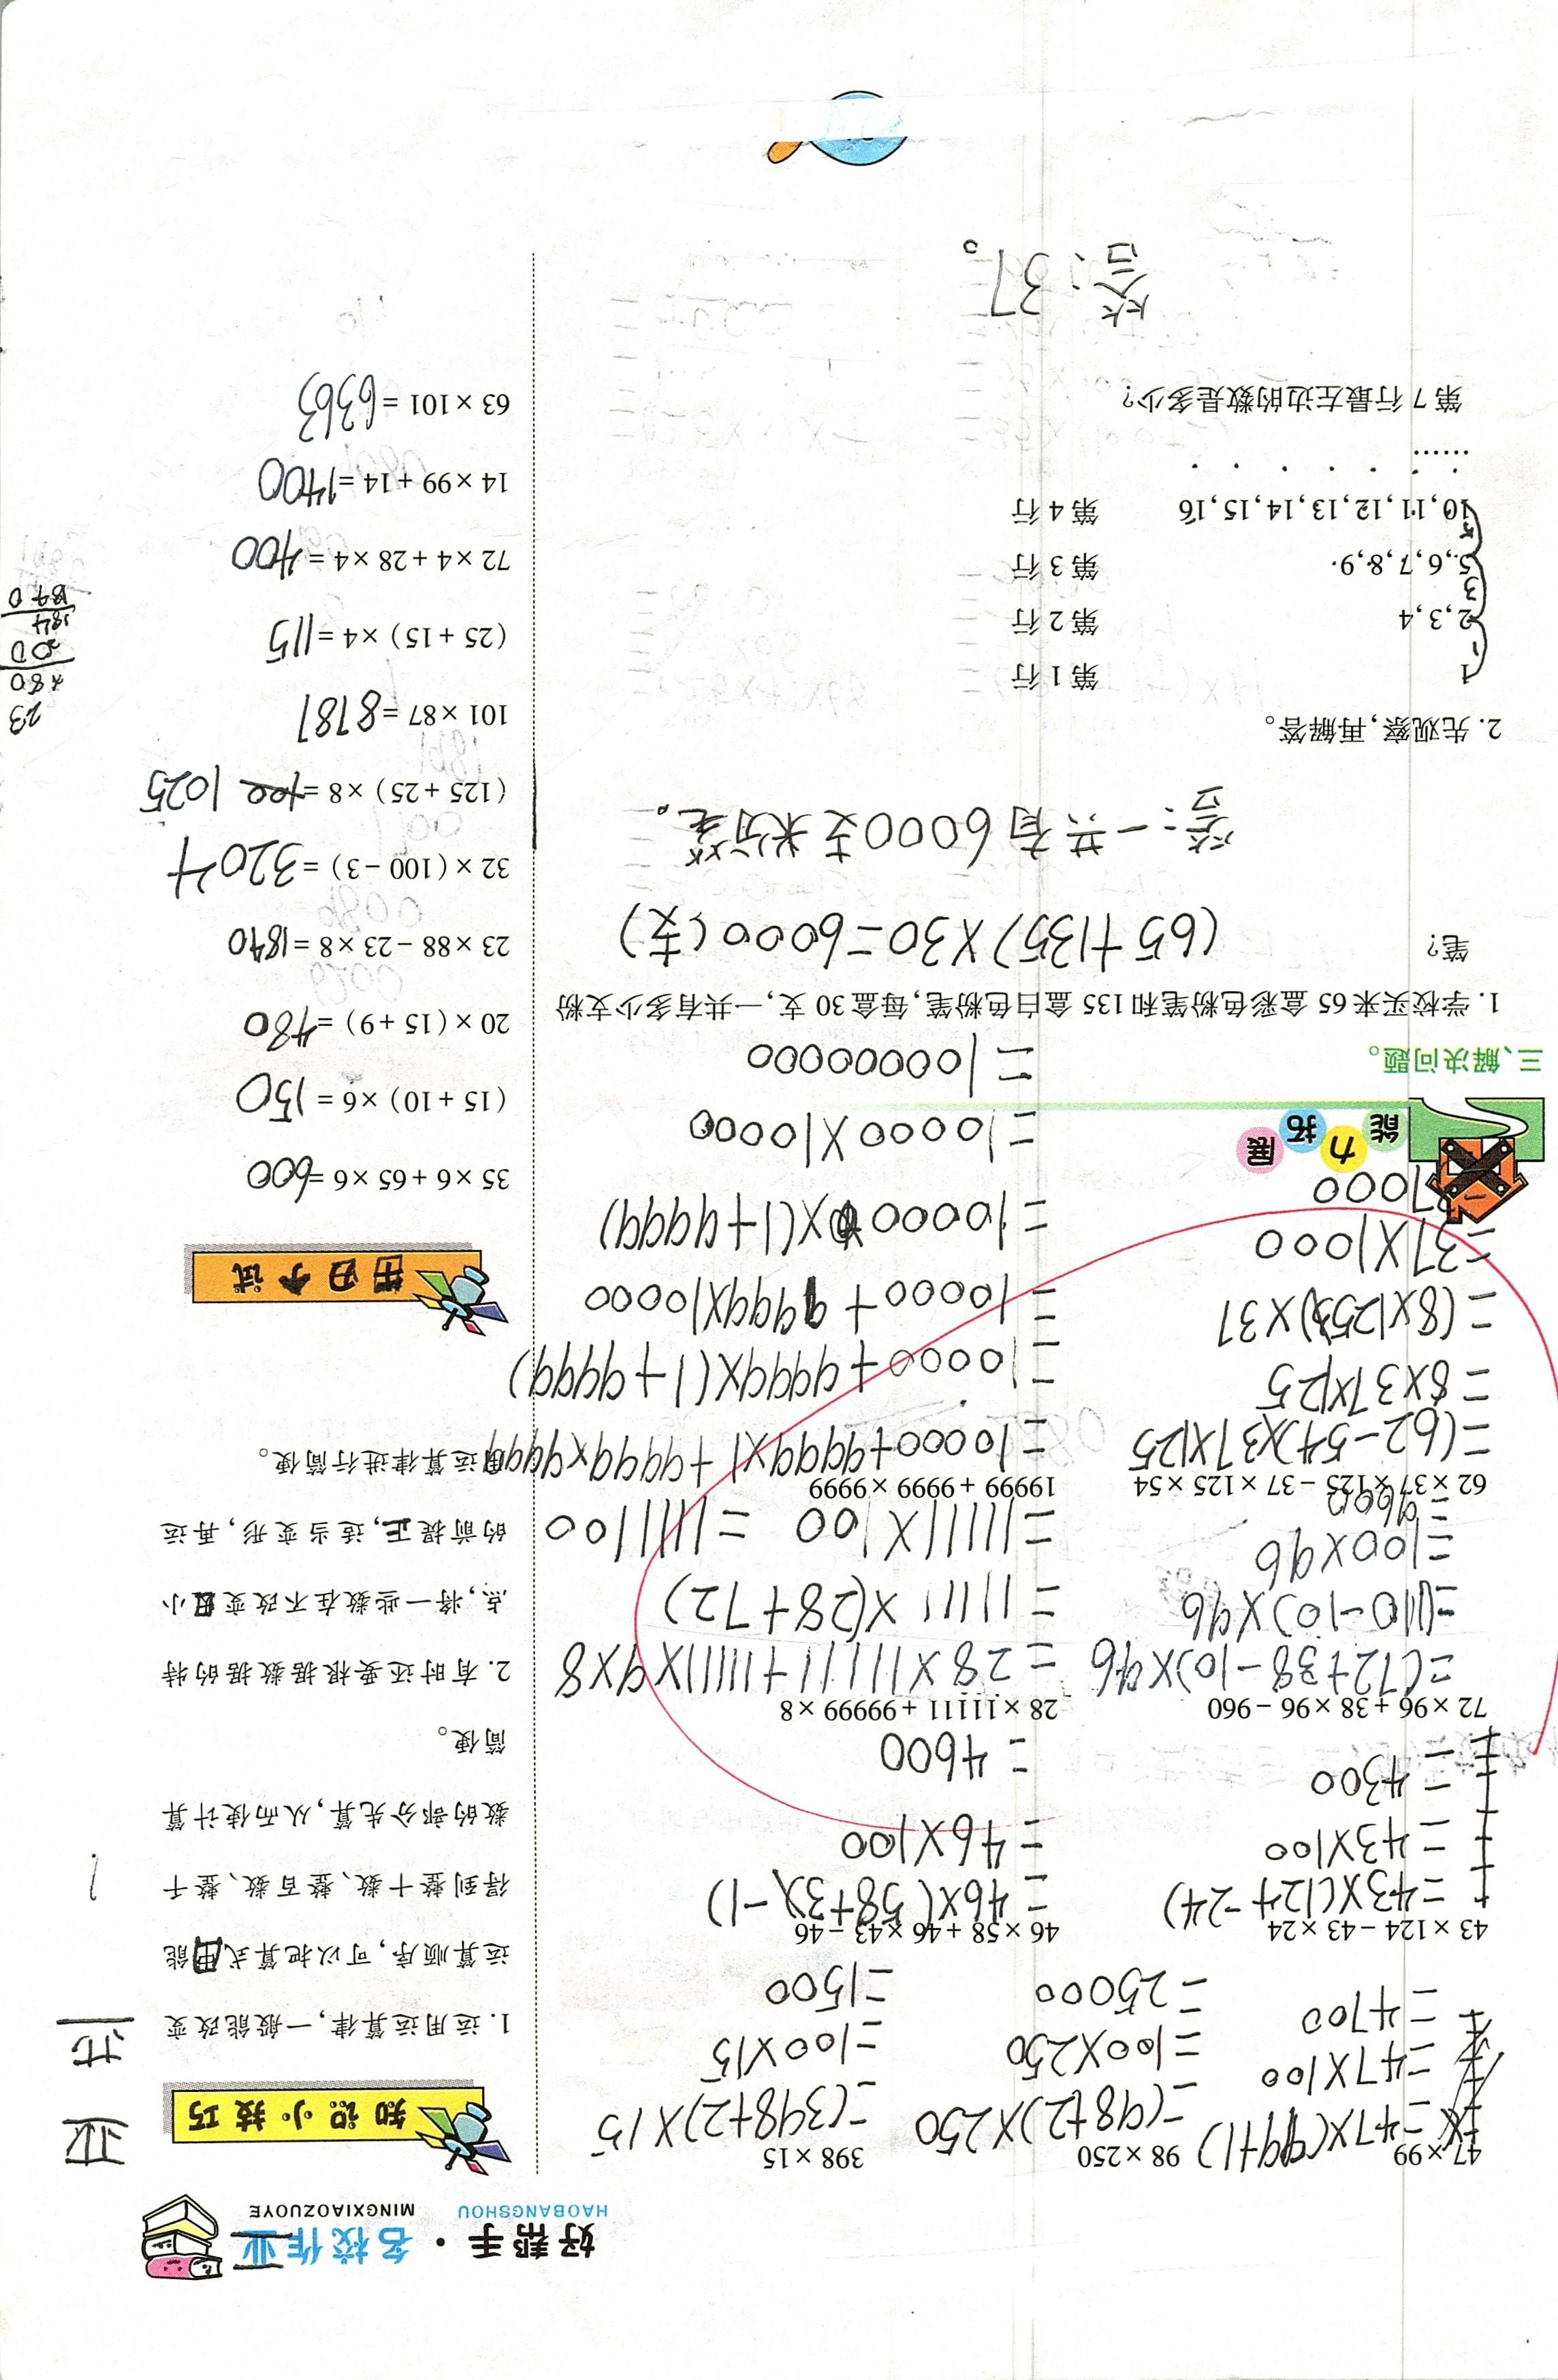 好帮手·名校作业
HAOBANGSHOU MINGXIAOZUOYE
47×99
=47×(99+1)
=47×100
=4700
98×250
=(98+2)×250
=100×250
=25000
398×15
=(398+2)×15
=100×15
=1500
43×124-43×24
=43×(124-24)
=43×100
=4300
46×58+46×43-46
=46×(58+3-1)
=46×100
=4600
72×96+38×96-960
=(72+38-10)×96
=(110-10)×96
=100×96
=9600
28×11111+99999×8
=28×111111+11111×9×8
=11111×(28+72)
=11111×100 =1111100
62×37×125-37×125×54
=(62-54)×37×125
=8×37×125
=(8×125)×37
=37×1000
37000
19999+9999×9999
=10000+9999×1+9999×9999
=10000+9999×(1+9999)
=10000+9999×10000
=10000×(1+9999)
=10000×10000
=100000000
能力拓展
三、解决问题。
1. 学校买来65盒彩色粉笔和135盒白色粉笔,每盒30支,一共有多少支粉
笔?
(65+135)×30=6000(支)
答:一共有6000支米分笔。
2. 先观察,再解答。
1 第1行
2,3,4 第2行
5,6,7,8,9 第3行
10,11,12,13,14,15,16 第4行
……
第7行最左边的数是多少?
答:37。
知识小技巧
1. 运用运算律,一般能改变
运算顺序,可以把算式中能
得到整十数、整百数、整千
数的部分先算,从而使计算
简便。
2. 有时还要根据数据的特
点,将一些数在不改变大小
的前提下,适当变形,再运
用运算律进行简便。
牛刀小试
35×6+65×6=600
(15+10)×6=150
20×(15+9)=480
23×88-23×8=1840
32×(100-3)=3204
(125+25)×8=1025
101×87=8787
(25+15)×4=115
72×4+28×4=400
14×99+14=1400
63×101=6363
23
×80
00
184
1840